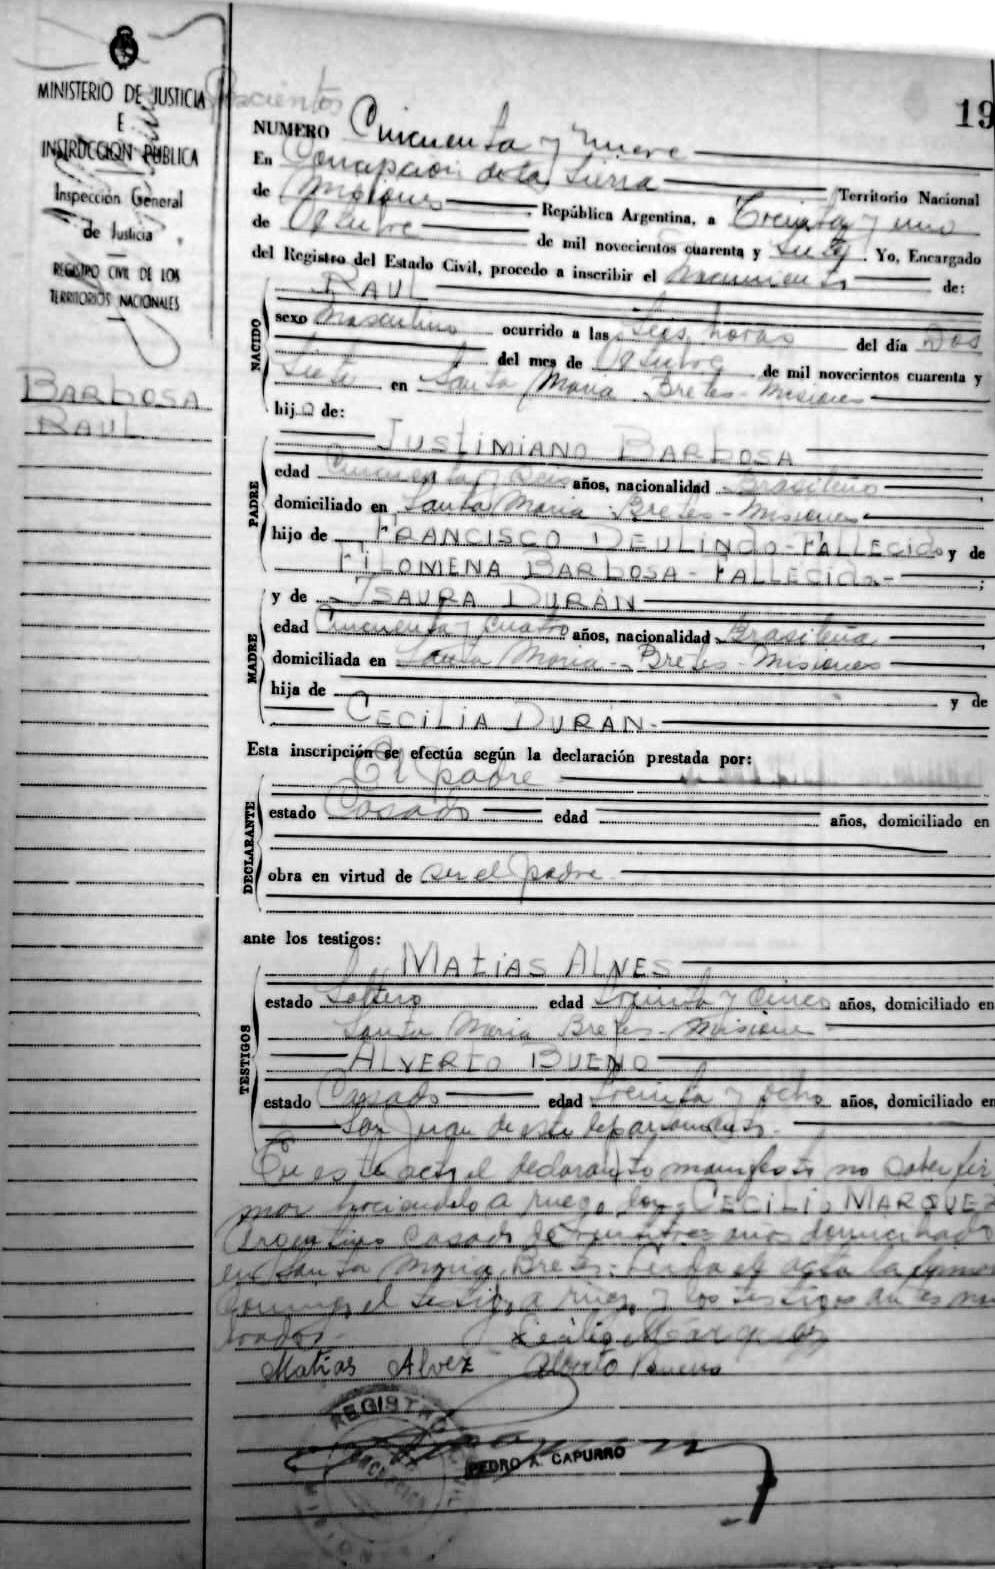 MINISTERIO DE JUSTICIA
E
INSTRUCCION PUBLICA
Inspección General
de Justicia
REGISTRO CIVIL DE LOS
TERRITORIOS NACIONALES
BARBOSA
RAUL
19
NUMERO Cincuenta y nueve
En Concepcion de la Sierra Territorio Nacional
de Misiones República Argentina, a Treinta y uno
de Octubre de mil novecientos cuarenta y siete Yo, Encargado
del Registro del Estado Civil, procedo a inscribir el nacimiento de:
NACIDO
RAUL
sexo masculino ocurrido a las seis horas del día Dos
del mes de Octubre de mil novecientos cuarenta y
siete en Santa Maria Bretes - Misiones
hijo de:
PADRE
JUSTIMIANO BARBOSA
edad Cincuenta y seis años, nacionalidad Brasileño
domiciliado en Santa Maria Bretes - Misiones
hijo de FRANCISCO DEULINDO - FALLECIDO y de
FILOMENA BARBOSA - FALLECIDA - ;
MADRE
y de ISAURA DURÁN
edad Cincuenta y cuatro años, nacionalidad Brasileña
domiciliada en Santa Maria - Bretes - Misiones
hija de y de
CECILIA DURÁN -
Esta inscripción se efectúa según la declaración prestada por:
DECLARANTE
El padre
estado Casado edad años, domiciliado en
obra en virtud de ser el padre
ante los testigos:
TESTIGOS
MATIAS ALVES
estado Soltero edad treinta y cinco años, domiciliado en
Santa Maria Bretes - Misiones
ALVERTO BUENO
estado Casado edad treinta y ocho años, domiciliado en
San Juan de este departamento -
En este acto el declarante manifesto no saber fir
mar haciendolo a ruego don CECILIO MARQUEZ
Argentino casado de años domiciliado
en Santa Maria Bretes. Leida el acta la firman
conmigo el testigo a ruego y los testigos antes nom
brados -
Cecilio Marquez
Matias Alvez Alberto Bueno
REGISTRO
MISIONES
PEDRO A. CAPURRO